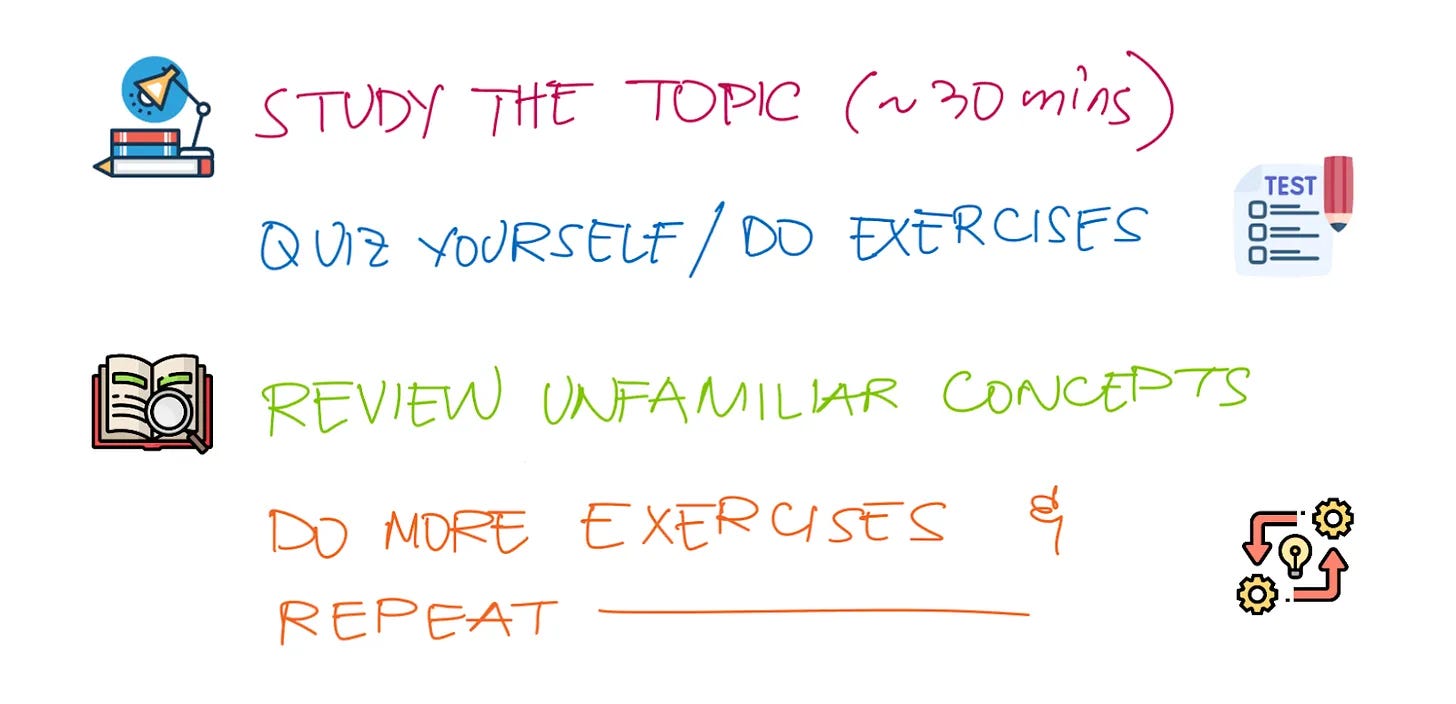 STUDY THE TOPIC (~30 mins)
TEST
QUIZ YOURSELF / DO EXERCISES
REVIEW UNFAMILIAR CONCEPTS
DO MORE EXERCISES &
REPEAT